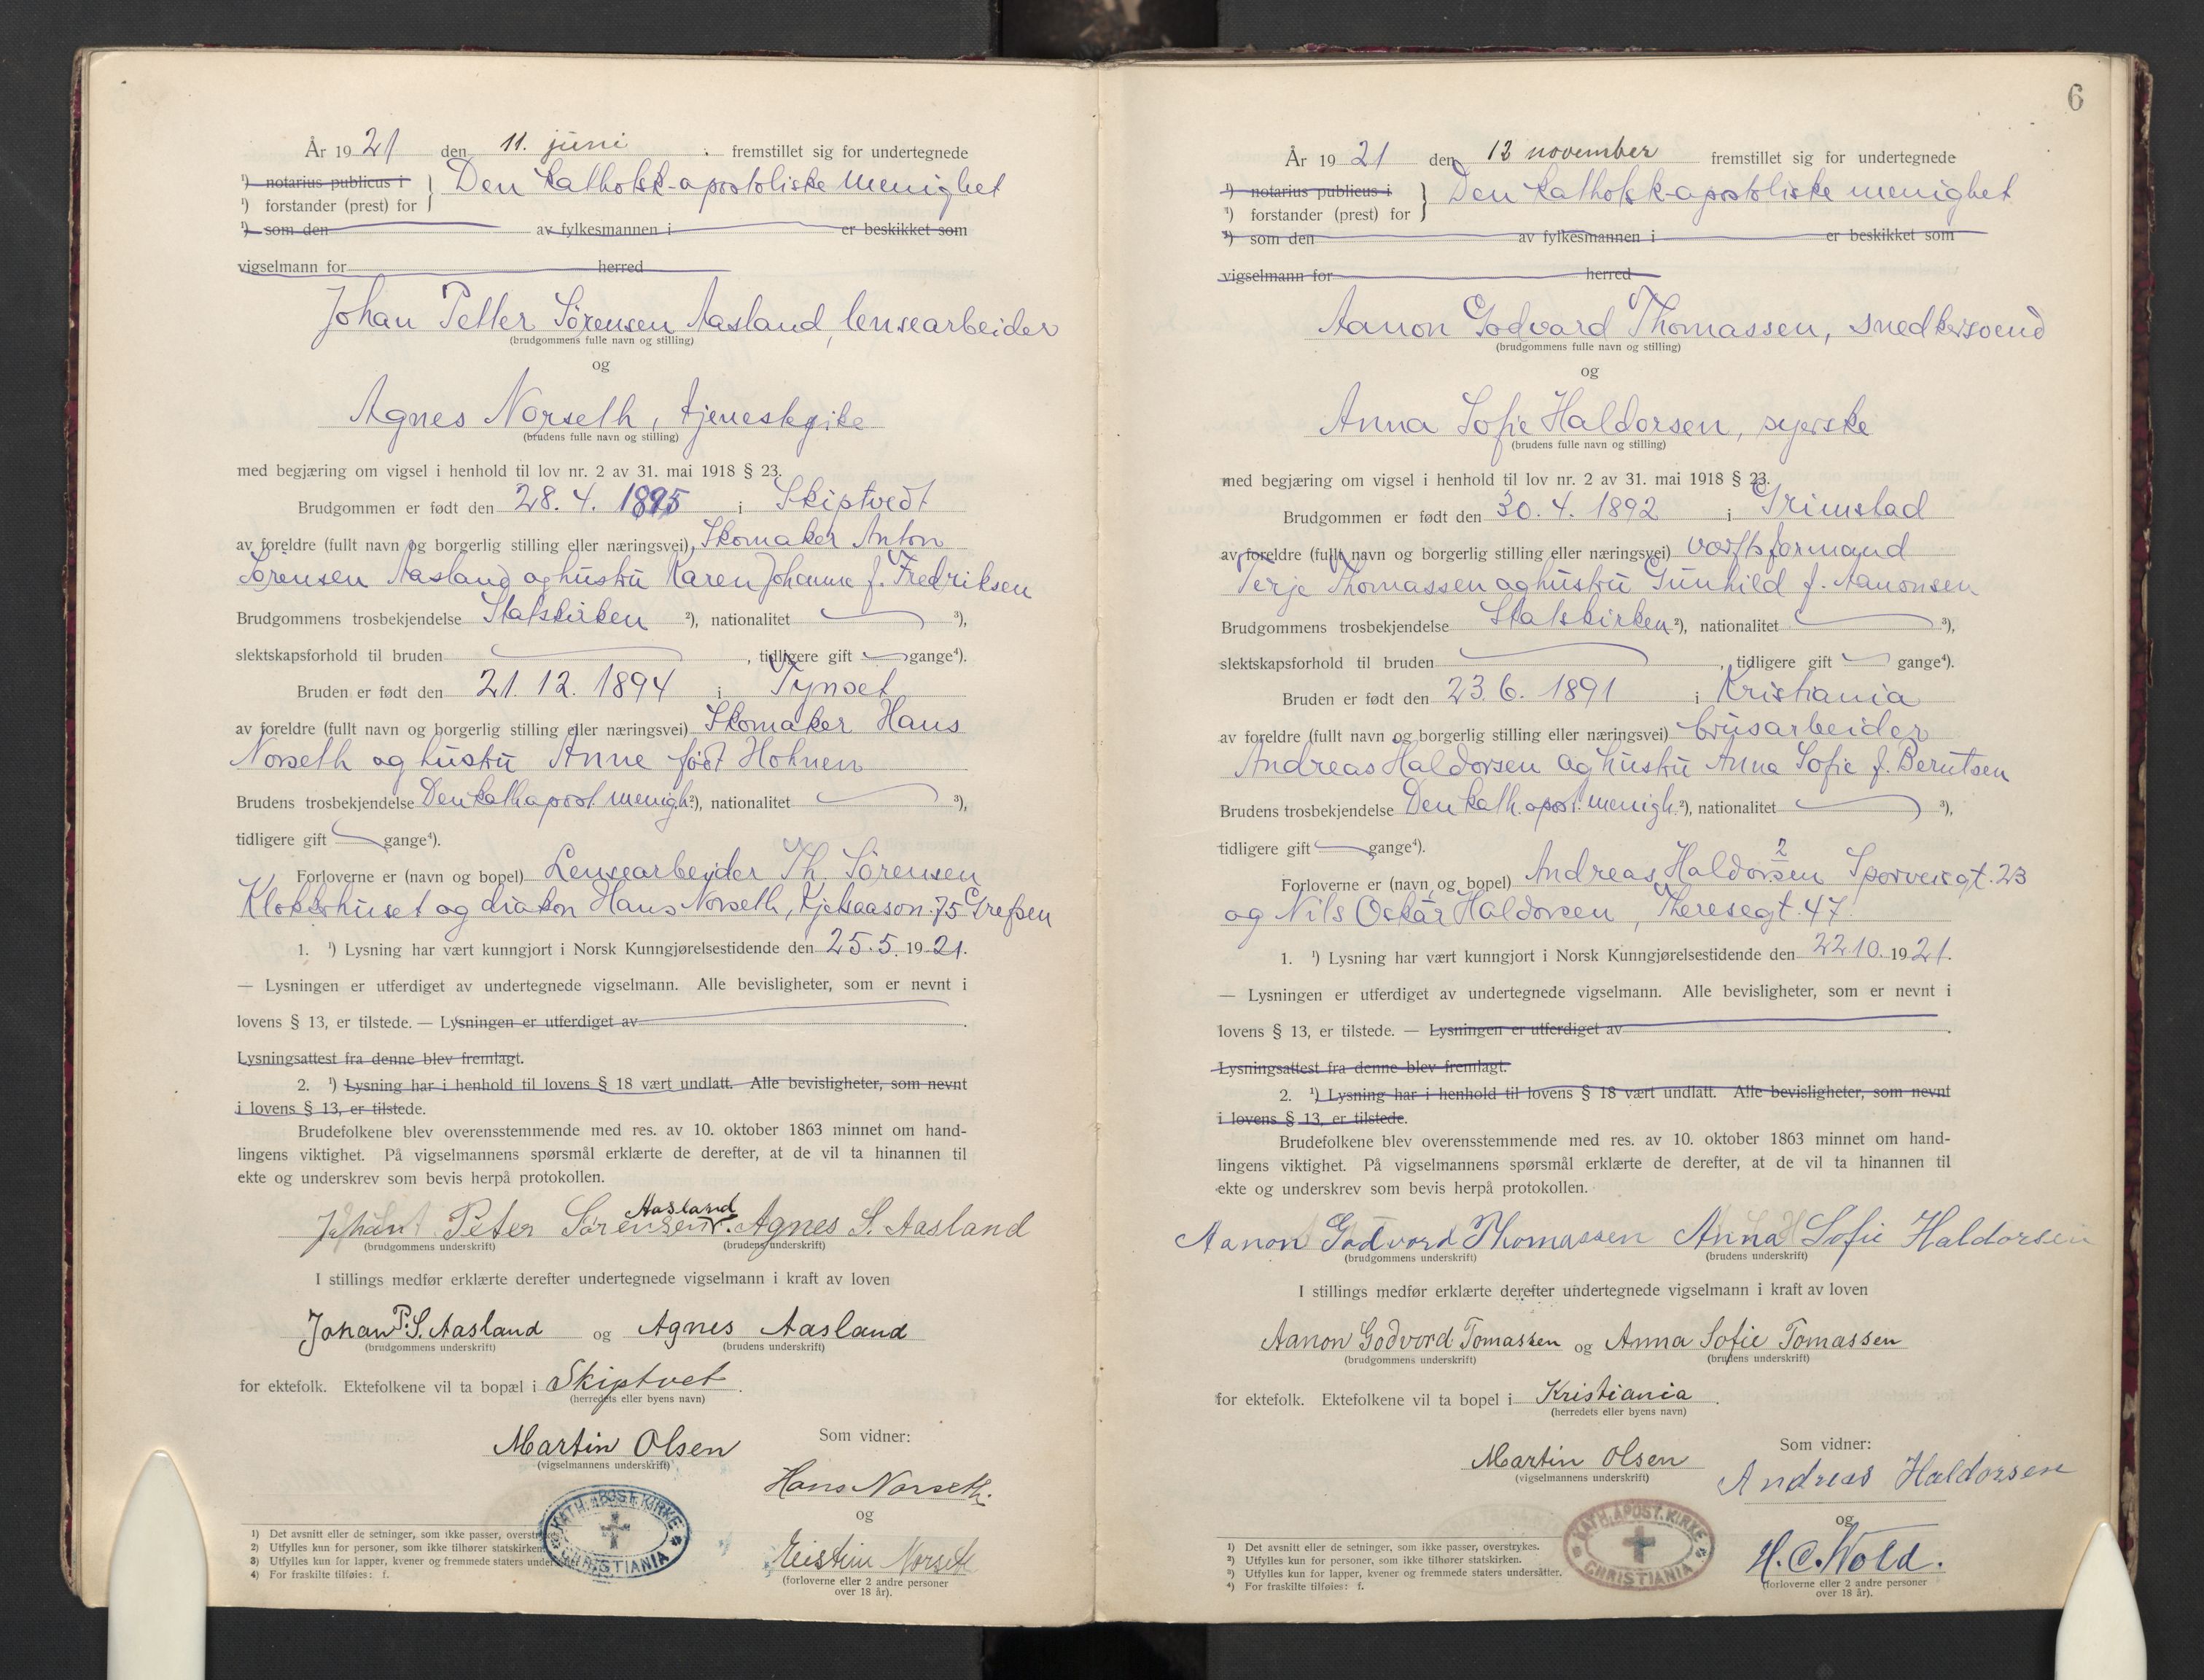 År 1921 den 11. juni fremstillet sig for undertegnede
¹) notarius publicus i
¹) forstander (prest) for
Den katholsk-apostoliske menighet
¹) som den av fylkesmannen i er beskikket som
vigselmann for herred
Johan Petter Sörensen Aasland, lensearbeider
(brudgommens fulle navn og stilling)
og
Agnes Norseth, tjenestepike
(brudens fulle navn og stilling)
med begjæring om vigsel i henhold til lov nr. 2 av 31. mai 1918 § 23.
Brudgommen er født den 28. 4. 1895 i Skiptvedt
av foreldre (fullt navn og borgerlig stilling eller næringsvei) Skomaker Anton
Sörensen Aasland og hustru Karen Johanne f. Fredriksen
Brudgommens trosbekjendelse Statskirken ²), nationalitet ³),
slektskapsforhold til bruden , tidligere gift gange⁴).
Bruden er født den 21. 12. 1894 i Tynset
av foreldre (fullt navn og borgerlig stilling eller næringsvei) Skomaker Hans
Norseth og hustru Anne født Hohnen
Brudens trosbekjendelse Den kath apost menigh. ²), nationalitet ³),
tidligere gift gange⁴).
Forloverne er (navn og bopel) Lensearbeider Th. Sörensen
Klokkerhuset og diakon Hans Norseth, Kjelsaasvn. 75 Grefsen
1. ¹) Lysning har vært kunngjort i Norsk Kunngjørelsestidende den 25. 5. 1921.
— Lysningen er utferdiget av undertegnede vigselmann. Alle bevisligheter, som er nevnt i
lovens § 13, er tilstede. — Lysningen er utferdiget av .
Lysningsattest fra denne blev fremlagt.
2. ¹) Lysning har i henhold til lovens § 18 vært undlatt. Alle bevisligheter, som nevnt
i lovens § 13, er tilstede.
Brudefolkene blev overensstemmende med res. av 10. oktober 1863 minnet om hand-
lingens viktighet. På vigselmannens spørsmål erklærte de derefter, at de vil ta hinannen til
ekte og underskrev som bevis herpå protokollen.
Aasland
Johan Peter Sörensen Agnes S. Aasland
(brudgommens underskrift) (brudens underskrift)
I stillings medfør erklærte derefter undertegnede vigselmann i kraft av loven
Johan P. S. Aasland og Agnes Aasland
(brudgommens underskrift) (brudens underskrift)
for ektefolk. Ektefolkene vil ta bopæl i Skiptvet .
(herredets eller byens navn)
Martin Olsen
(vigselmannens underskrift)
Som vidner:
Hans Norseth.
og
Norseth
(forloverne eller 2 andre personer
over 18 år).
KATH. APOST. KIRKE
CHRISTIANIA
1) Det avsnitt eller de setninger, som ikke passer,
2) Utfylles kun for personer, som ikke tilhører statskirken.
3) Utfylles kun for lapper, kvener og fremmede staters
4) For fraskilte tilføies: f.
6
År 1921 den 12 november fremstillet sig for undertegnede
¹) notarius publicus i
¹) forstander (prest) for
Den katholsk-apostoliske menighet
¹) som den av fylkesmannen i er beskikket som
vigselmann for herred
Aanon Godvard Thomassen, snedkersvend
(brudgommens fulle navn og stilling)
og
Anna Sofie Haldorsen, syerske
(brudens fulle navn og stilling)
med begjæring om vigsel i henhold til lov nr. 2 av 31. mai 1918 § 23.
Brudgommen er født den 30. 4. 1892 i Grimstad
av foreldre (fullt navn og borgerlig stilling eller næringsvei) værftsformand
Terje Thomassen og hustru Gunhild f. Aanonsen
Brudgommens trosbekjendelse Statskirken ²), nationalitet ³),
slektskapsforhold til bruden , tidligere gift gange⁴).
Bruden er født den 23. 6. 1891 i Kristiania
av foreldre (fullt navn og borgerlig stilling eller næringsvei) brusarbeider
Andreas Haldorsen og hustru Anna Sofie f. Berntsen
Brudens trosbekjendelse Den kath. apost. menigh. ²), nationalitet ³),
tidligere gift gange⁴).
Forloverne er (navn og bopel) Andreas Haldorsen Sporveisgt. 23
og Nils Oskar Haldorsen, Theresegt. 47.
1. ¹) Lysning har vært kunngjort i Norsk Kunngjørelsestidende den 22 10. 1921.
— Lysningen er utferdiget av undertegnede vigselmann. Alle bevisligheter, som er nevnt i
lovens § 13, er tilstede. — Lysningen er utferdiget av .
Lysningsattest fra denne blev fremlagt.
2. ¹) Lysning har i henhold til lovens § 18 vært undlatt. Alle bevisligheter, som nevnt
i lovens § 13, er tilstede.
Brudefolkene blev overensstemmende med res. av 10. oktober 1863 minnet om hand-
lingens viktighet. På vigselmannens spørsmål erklærte de derefter, at de vil ta hinannen til
ekte og underskrev som bevis herpå protokollen.
Aanon Godvard Thomassen Anna Sofie Haldorsen
(brudgommens underskrift) (brudens underskrift)
I stillings medfør erklærte derefter undertegnede vigselmann i kraft av loven
Aanon Godvord Tomassen og Anna Sofie Tomassen
(brudgommens underskrift) (brudens underskrift)
for ektefolk. Ektefolkene vil ta bopel i Kristiania .
(herredets eller byens navn)
Martin Olsen
(vigselmannens underskrift)
Som vidner:
Andreas Haldorsen
og
H. C. Wold.
(forloverne eller 2 andre personer
over 18 år).
KATH. APOST. KIRKE
CHRISTIANIA
¹) Det avsnitt eller de setninger, som ikke passer, overstrykes.
²) Utfylles kun for personer, som ikke tilhører statskirken.
³) Utfylles kun for lapper, kvener og fremmede staters undersåtter.
⁴) For fraskilte tilføies: f.